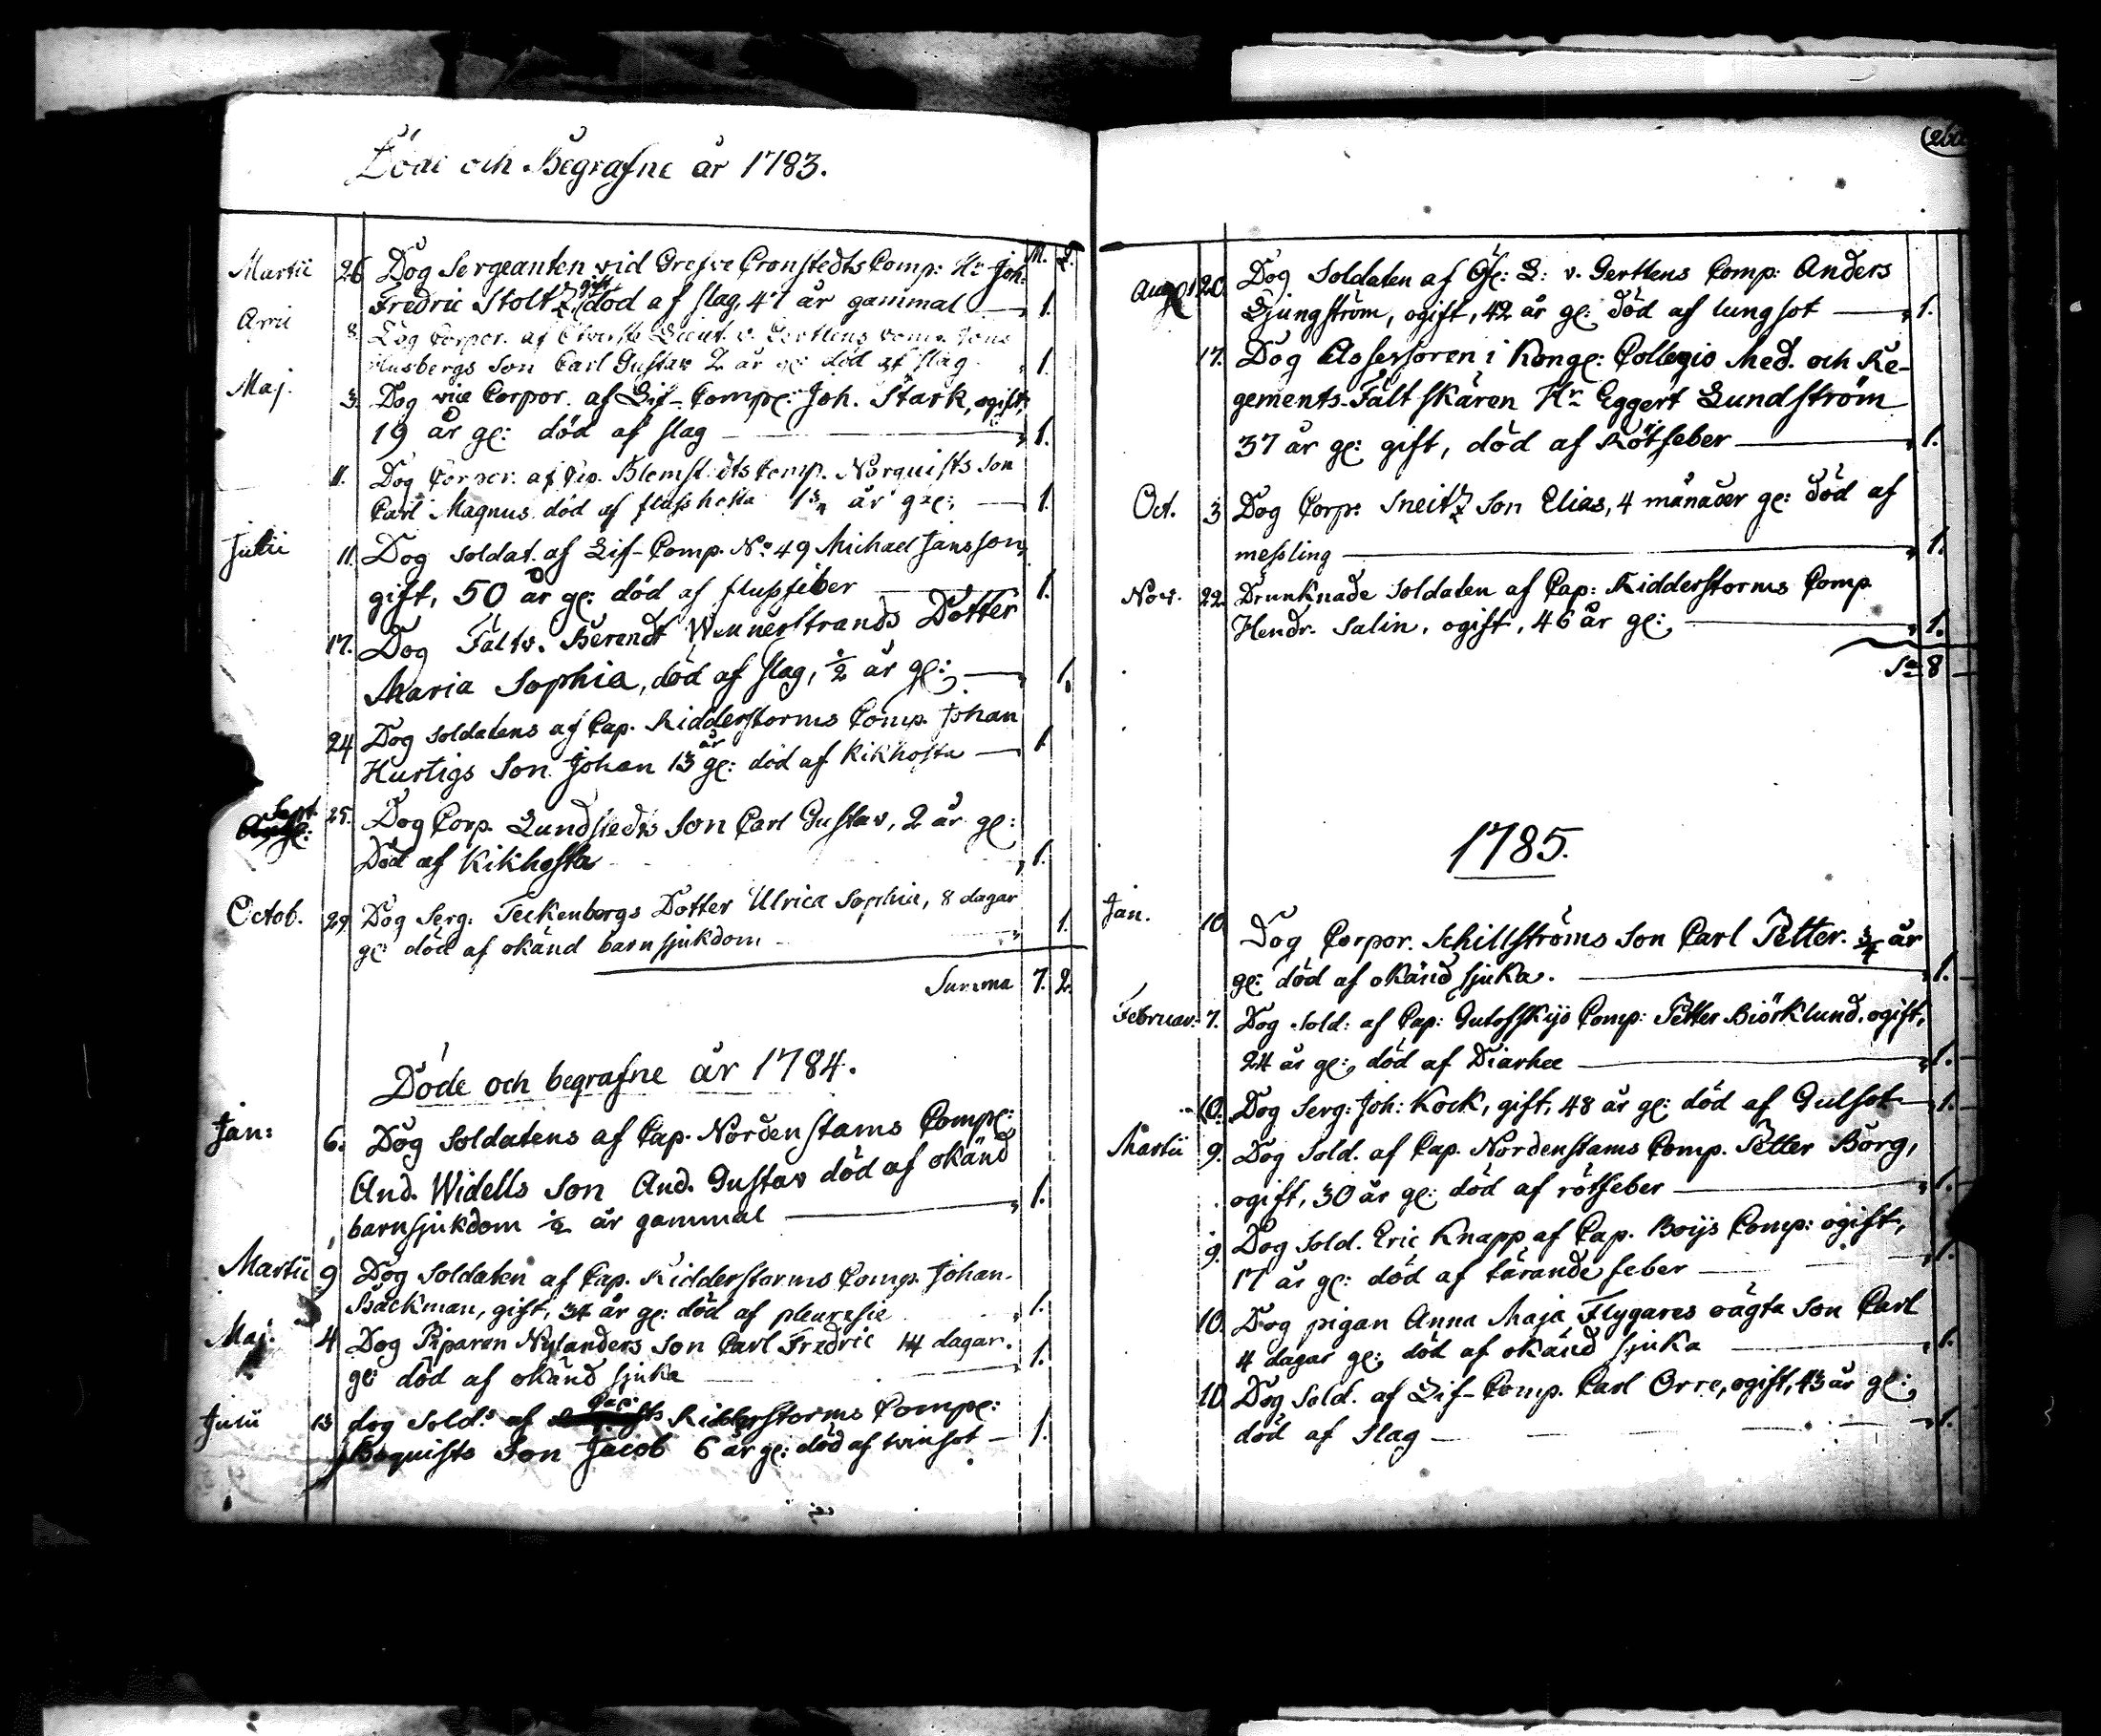 Döde och Begrafne år 1783.
M. Q.
Martii 26 Dog Sergeanten vid Grefve Cronstedts Comp: Hr Joh.
Fredric Stoltz, gift död af slag, 47 år gammal 1.
8. Dog Corpor. af Lieut. v. Gerttens
Son Carl Gustav 2 år gl: död af slag 1
Maj. 3. Dog vice Corpor. af Lif-Comp: Joh. Stark, ogift,
19 år gl: död af slag 1.
11. Dog Corpor. af Cap. Blomstedts Comp. Norquists Son
Carl Magnus död af år gl: 1.
Julii 11. Dog soldat. af Lif-Comp. No 49 Michael Jansson,
gift, 50 år gl: död af flussfeber 1.
17. Dog Fältv. Berendt Wennerstrands Dotter
Maria Sophia, död af slag, 1/2 år gl: 1.
24 Dog soldatens af Cap. Ridderstorms Comp. Johan
Hurtigs Son Johan 13 år gl: död af Kikhosta 1
Sept. 25. Dog Corp. Lundstedts Son Carl Gustav, 2 år gl:
Död af Kikhosta 1.
Octob. 29 Dog Serg. Teckenbergs Dotter Ulrica Sophia, 8 dagar
gl: död af okänd barnsjukdom 1.
Summa 7. 2.
Döde och begrafne år 1784.
Jan: 6. Dog Soldatens af Cap. Nordenstams Comp:
And. Widells Son And. Gustav död af okänd
barnsjukdom 1/2 år gammal 1.
Martii 9 Dog Soldaten af Cap. Ridderstorms Comp. Johan
Bäckman, gift, 34 år gl: död af pleuresie 1.
Maj. 4 Dog Piparen Nylanders Son Carl Fredric 14 dagar
gl: död af okänd sjuka 1.
13 dog Sold:s af Cap: Ridderstorms Comp:
Boquists Son Jacob 6 år gl: död af tvinsot 1.
Aug. 20. Dog Soldaten af L: v. Gerttens Comp: Anders
Ljungström, ogift, 42 år gl: död af lungsot 1.
17. Dog Assessoren i Kongl: Collegio Med. och Re-
gements-Fältskären Hr Eggert Lundström
37 år gl: gift, död af Rötfeber 1.
Oct. 3 Dog Corp: Sneitz Son Elias, 4 månader gl: död af
messling 1.
Nov. 22. Drunknade Soldaten af Cap: Ridderstorms Comp.
Hendr. Salin, ogift, 46 år gl: 1.
Sa 8
1785.
Jan. 10 Dog Corpor. Schillströms Son Carl Petter. 3/4 år
gl: död af okänd sjuka. 1.
Februar. 7. Dog Sold: af Cap: Gutofskys Comp: Petter Biörklund, ogift,
24 år gl: död af Diarhee 1.
10. Dog Serg: Joh: Kock, gift, 48 år gl: död af Gulsot 1.
Martii 9. Dog Sold. af Cap. Nordenstams Comp. Petter Borg,
ogift, 30 år gl: död af rötfeber 1.
9. Dog Sold. Eric Knapp af Cap. Boijs Comp: ogift,
17 år gl: död af tärande feber 1.
10. Dog pigan Anna Maja Flygares oägta Son Carl
4 dagar gl: död af okänd sjuka 1.
10. Dog Sold. af Lif-Comp. Carl Orre, ogift, 43 år gl:
död af Slag 1.